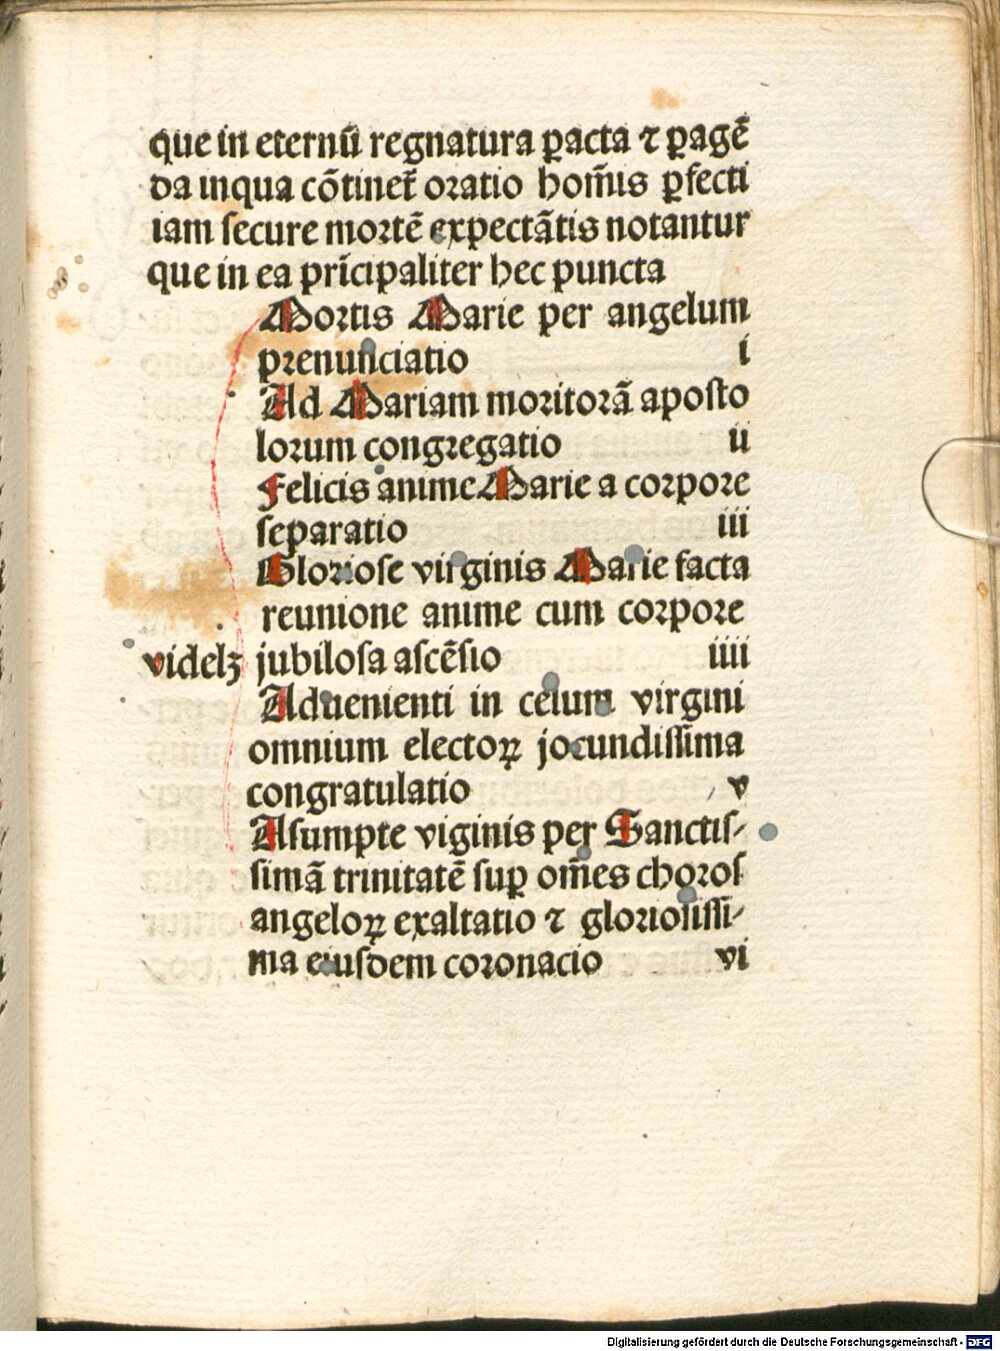 que in eternū regnatura ꝑacta ⁊ ꝑagē
da inqua cōtinet̄ oratio hom̄is ꝑfecti
iam secure mortē expectātis notantur
que in ea prīcipaliter hec puncta
Mortis Marie per angelum
prenunciatio i
Ad Mariam moritorā aposto
lorum congregatio ii
Felicis anime Marie a corpore
separatio iii
Gloriose virginis Marie facta
reunione anime cum corpore
videlꝫ jubilosa ascēsio iiii
Aduenienti in celum virgini
omnium electoꝝ jocundissima
congratulatio v
Assumpte viginis per Sanctis⸗
simā trinitatē suꝑ om̄es choros
angeloꝝ exaltatio ⁊ gloriosissi⸗
ma eiusdem coronacio vi
Digitalisierung gefördert durch die Deutsche Forschungsgemeinschaft - DFG